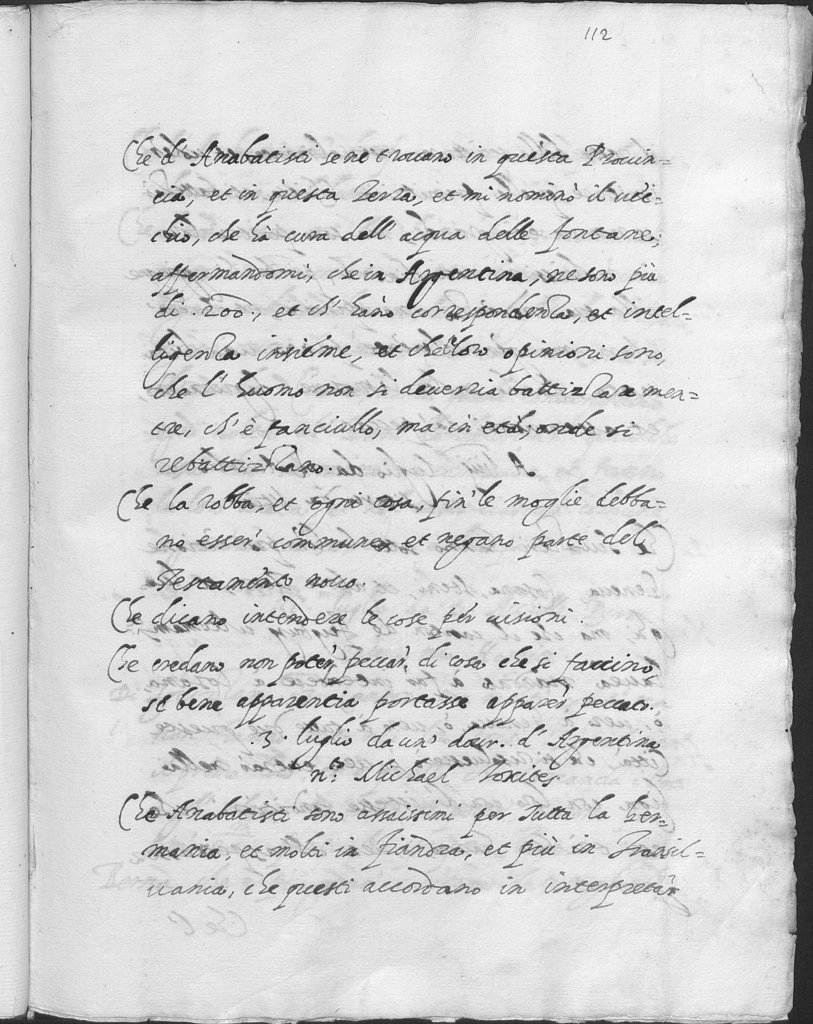 112
Che d' Anabatisti se ne trovano in questa Provin=
cia, et in questa Terra, et mi nominò il vec=
chio, che hà cura dell' acqua delle fontane,
affermandomi, che in Argentina, ne sono più
di .200., et ch' hano correspondenza, et intel=
ligenza insieme, et che loro opinioni sono,
che l' huomo non si deverria battizzare men=
tre, ch' è fanciullo, ma in età, onde si
rebattizzano.
Che la robba, et ogni cosa, fin' le moglie debba=
no esser' commune, et negano parte del
Testamento novo.
Che dicano intendere le cose per visioni.
Che credano non poter' peccar' di cosa che si faccino,
se bene apparentia portasse apparer' peccato.
.3. luglio da un' dor. d' Argentina
n.to Michael Toxites
Che Anabatisti sono assaissimi per tutta la Ger=
mania, et molti in fiandra, et più in Transil=
vania, che questi accordano in interpretar'